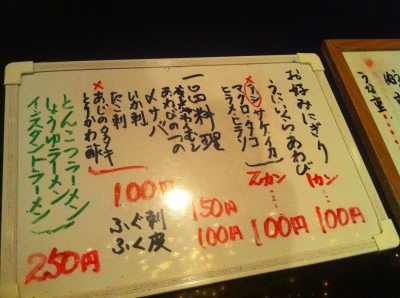 お好みにぎり
うに、いくら、あわび
1カン……100円
×アジ サケ イカ
マグロ タコ
ヒラメ
2カン……100円
一品料理
茶わんむし
100円
あわびの
150円
〆サバ
いか刺
たこ刺
×あじのタタキ
とりかわ酢
100円
ふぐ刺
ふぐ皮
とんこつラーメン
しょうゆラーメン
インスタントラーメン
250円
うな重